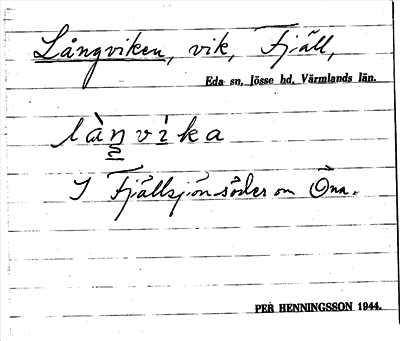 Långviken, vik, Fjäll,
Eda sn, Jösse hd, Värmlands län.
làŋvìka
I Fjällsjön söder om Öna.
PER HENNINGSSON 1944.